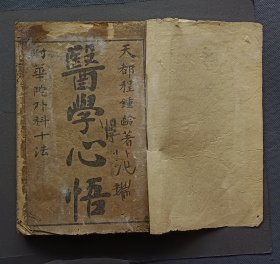 天都程鍾齡著
醫學心悟
華陀外科十法